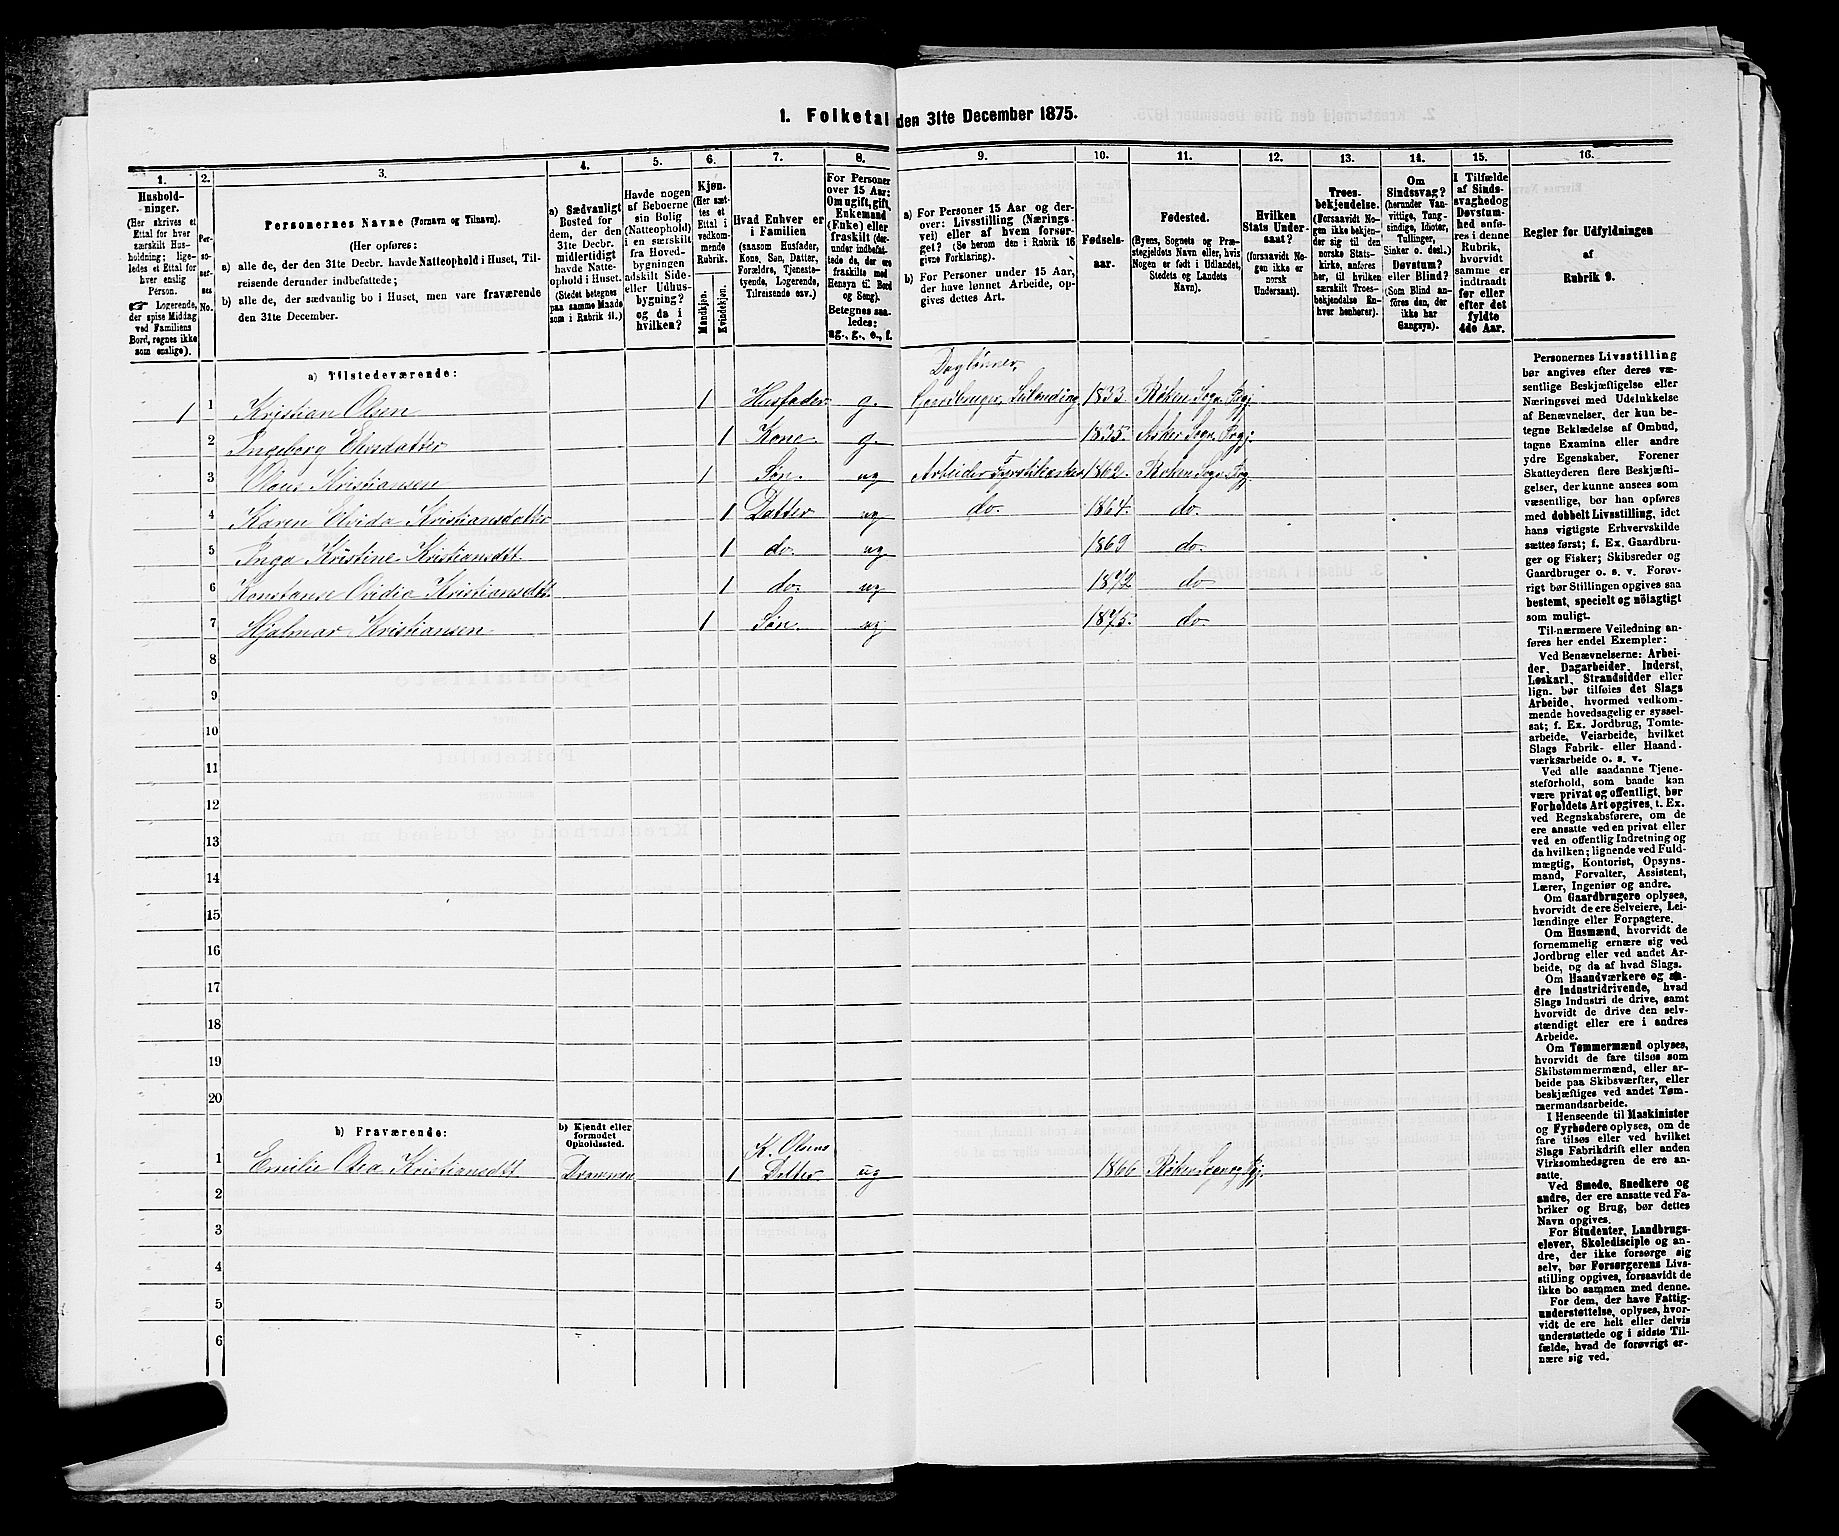 1. Folketal den 31te December 1875.
1.
2.
3.
4.
5.
6.
7.
8.
9.
10.
11.
12.
13.
14.
15.
16.
Hushold-
ninger.
(Her skrives et
Ettal for hver
særskilt Hus-
holdning; lige-
ledes et Ettal for
hver enslig
Person.
☞ Logerende,
der spise Middag
ved Familiens
Bord, regnes ikke
som enslige).
Per-
so-
ner-
nes
No.
Personernes Navne (Fornavn og Tilnavn).
(Her opføres:
a) alle de, der den 31te Decbr. havde Natteophold i Huset, Til-
reisende derunder indbefattede;
b) alle de, der sædvanlig bo i Huset, men vare fraværende
den 31te December.
a) Sædvanligt
Bosted for
dem, der den
31te Decbr.
midlertidigt
havde Natte-
ophold i Huset.
(Stedet betegnes
paa samme Maade
som i Rubrik 11.)
Havde nogen
af Beboerne
sin Bolig
(Natteophold)
i en særskilt
fra Hoved-
bygningen
adskilt Side-
eller Udhus-
bygning? og
og da i
hvilken?
Kjøn.
(Her sæt-
tes et
Ettal i
vedkom-
mende
Rubrik.
Mandkjøn.
Kvindekjøn.
Hvad Enhver er
i Familien
(saasom Husfader,
Kone, Søn, Datter,
Forældre, Tjeneste-
tyende, Logerende,
Tilreisende osv.)
For Personer
over 15 Aar:
Om ugift, gift,
Enkemand
(Enke) eller
fraskilt (der-
under indbefat-
tede de, der ere
fraskilte med
Hensyn til Bord
og Seng).
Betegnes saa-
ledes:
ug., g., e., f.
a) For Personer 15 Aar og der-
over: Livsstilling (Nærings-
vei) eller af hvem forsør-
get? (Se herom den i Rubrik 16
givne Forklaring).
b) For Personer under 15 Aar,
der have lønnet Arbeide, op-
gives dettes Art.
Fødsels-
aar.
Fødested.
(Byens, Sognets og Præ-
stegjeldets Navn eller, hvis
Nogen er født i Udlandet,
Stedets og Landets
Navn).
Hvilken
Stats Under-
saat?
(forsaavidt No-
gen ikke er
norsk
Undersaat).
Troes-
bekjendelse.
(Forsaavidt No-
gen ikke bekjen-
der sig til den
norske Stats-
kirke, anføres
her, til hvilken
særskilt Troes-
bekjendelse En-
hver henhører).
Om
Sindssvag?
(herunder Van-
vittige, Tung-
sindige, Idioter,
Tullinger,
Sinker o. desl.)
Døvstum?
eller Blind?
(Som Blind an-
føres den, der
ikke har
Gangsyn).
I Tilfælde
af Sinds-
svaghed og
Døvstum-
hed anfø-
res i denne
Rubrik,
hvorvidt
samme er
indtraadt
før eller
efter det
fyldte
4de Aar.
Regler for Udfyldningen
af
Rubrik 9.
a) Tilstedeværende:
Daglønner,
1 1 Kristian Olsen 1 Husfader g. Gaardbruger, Selveiag 1833 Røken Sogn Pgj
2 Ingeborg Eliasdatter 1 Kone g. 1835 Asker Sogn Pgj
3 Olaus Kristiansen 1 Søn ug Arbeider Fyrstikæsker 1862 Røken Sogn Pgj
4 Karen Elvida Kristiansdatter 1 Datter ug do. 1864 do.
5 Inga Kristine Kristiansdt 1 do. ug 1869 do.
6 Konstanse Ovidia Kristiansdt. 1 do. ug 1872 do
7 Hjalmar Kristiansen 1 Søn. ug 1875. do
8
9
10
11
12
13
14
15
16
17
18
19
20
b) Fraværende:
b) Kjendt eller
formodet
Opholdssted.
K. Olsens
1 Emilie Olea Kristiansdt Drammen 1 Datter ug 1866 Røken Sogn og Pgj.
2
3
4
5
6
Personernes Livsstilling
bør angives efter deres væ-
sentlige Beskjæftigelse eller
Næringsvei med Udelukkelse
af Benævnelser, der kun be-
tegne Beklædelse af Ombud,
tagne Examina eller andre
ydre Egenskaber. Forener
Skatteyderen flere Beskjæfti-
gelser, der kunne ansees som
væsentlige, bør han opføres
med dobbelt Livsstilling, idet
hans vigtigste Erhvervskilde
sættes først; f. Ex. Gaardbru-
ger og Fisker; Skibsreder og
Gaardbruger o. s. v. Forøv-
rigt bør Stillingen opgives saa
bestemt, specielt og nøiagtigt
som muligt.
Til nærmere Veiledning an-
føres her endel Exempler:
Ved Benævnelserne: Arbei-
der, Dagarbeider, Inderst,
Løskarl, Strandsidder eller
lign. bør tilføies det Slags
Arbeide, hvormed vedkom-
mende hovedsagelig er syssel-
sat; f. Ex. Jordbrug, Tomte-
arbeide, Veiarbeide, hvilket
Slags Fabrik- eller Haand-
værksarbeide o. s. v.
Ved alle saadanne Tjene-
steforhold, som baade kan
være privat og offentligt, bør
Forholdets Art opgives, t. Ex.
ved Regnskabsførere, om de
ere ansatte ved en privat eller
ved en offentlig Indretning og
da hvilken; lignende ved Fuld-
mægtig, Kontorist, Opsyns-
mand, Forvalter, Assistent,
Lærer, Ingeniør og andre.
Om Gaardbrugere oplyses,
hvorvidt de ere Selveiere, Lei-
lændinge eller Forpagtere.
Om Husmænd, hvorvidt de
fornemmelig ernære sig ved
Jordbrug eller ved andet Ar-
beide, og da af hvad Slags.
Om Haandværkere og an-
dre Industridrivende, hvad
Slags Industri de drive, samt
hvorvidt de drive den selv-
stændigt eller ere i andres
Arbeide.
Om Tømmermænd oplyses,
hvorvidt de fare tilsøs som
Skibstømmermænd, eller ar-
beide paa Skibsværfter, eller
beskjæftiges ved andet Tøm-
mermandsarbeide.
I Henseende til Maskinister
og Fyrbødere oplyses, om de
fare tilsøs eller ved hvilket
Slags Fabrikdrift eller anden
Virksomhedsgren de ere an-
satte.
Ved Smede, Snedkere og
andre, der ere ansatte ved Fa-
briker og Brug, bør dettes
Navn opgives.
For Studenter, Landbrugs-
elever, Skoledisciple og an-
dre, der ikke forsørge sig
selv, bør Forsørgerens Livs-
stilling opgives, forsaavidt de
ikke bo sammen med denne.
For dem, der have Fattig-
understøttelse, oplyses, hvor-
vidt de ere helt eller delvis
understøttede og i sidste Til-
fælde, hvad de forøvrigt er-
nære sig ved.